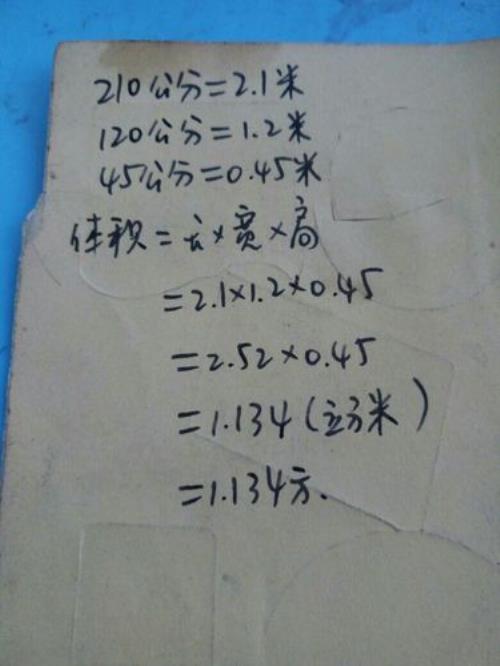 210公分=2.1米
120公分=1.2米
45公分=0.45米
体积=长×宽×高
=2.1×1.2×0.45
=2.52×0.45
=1.134(立方米)
=1.134方.